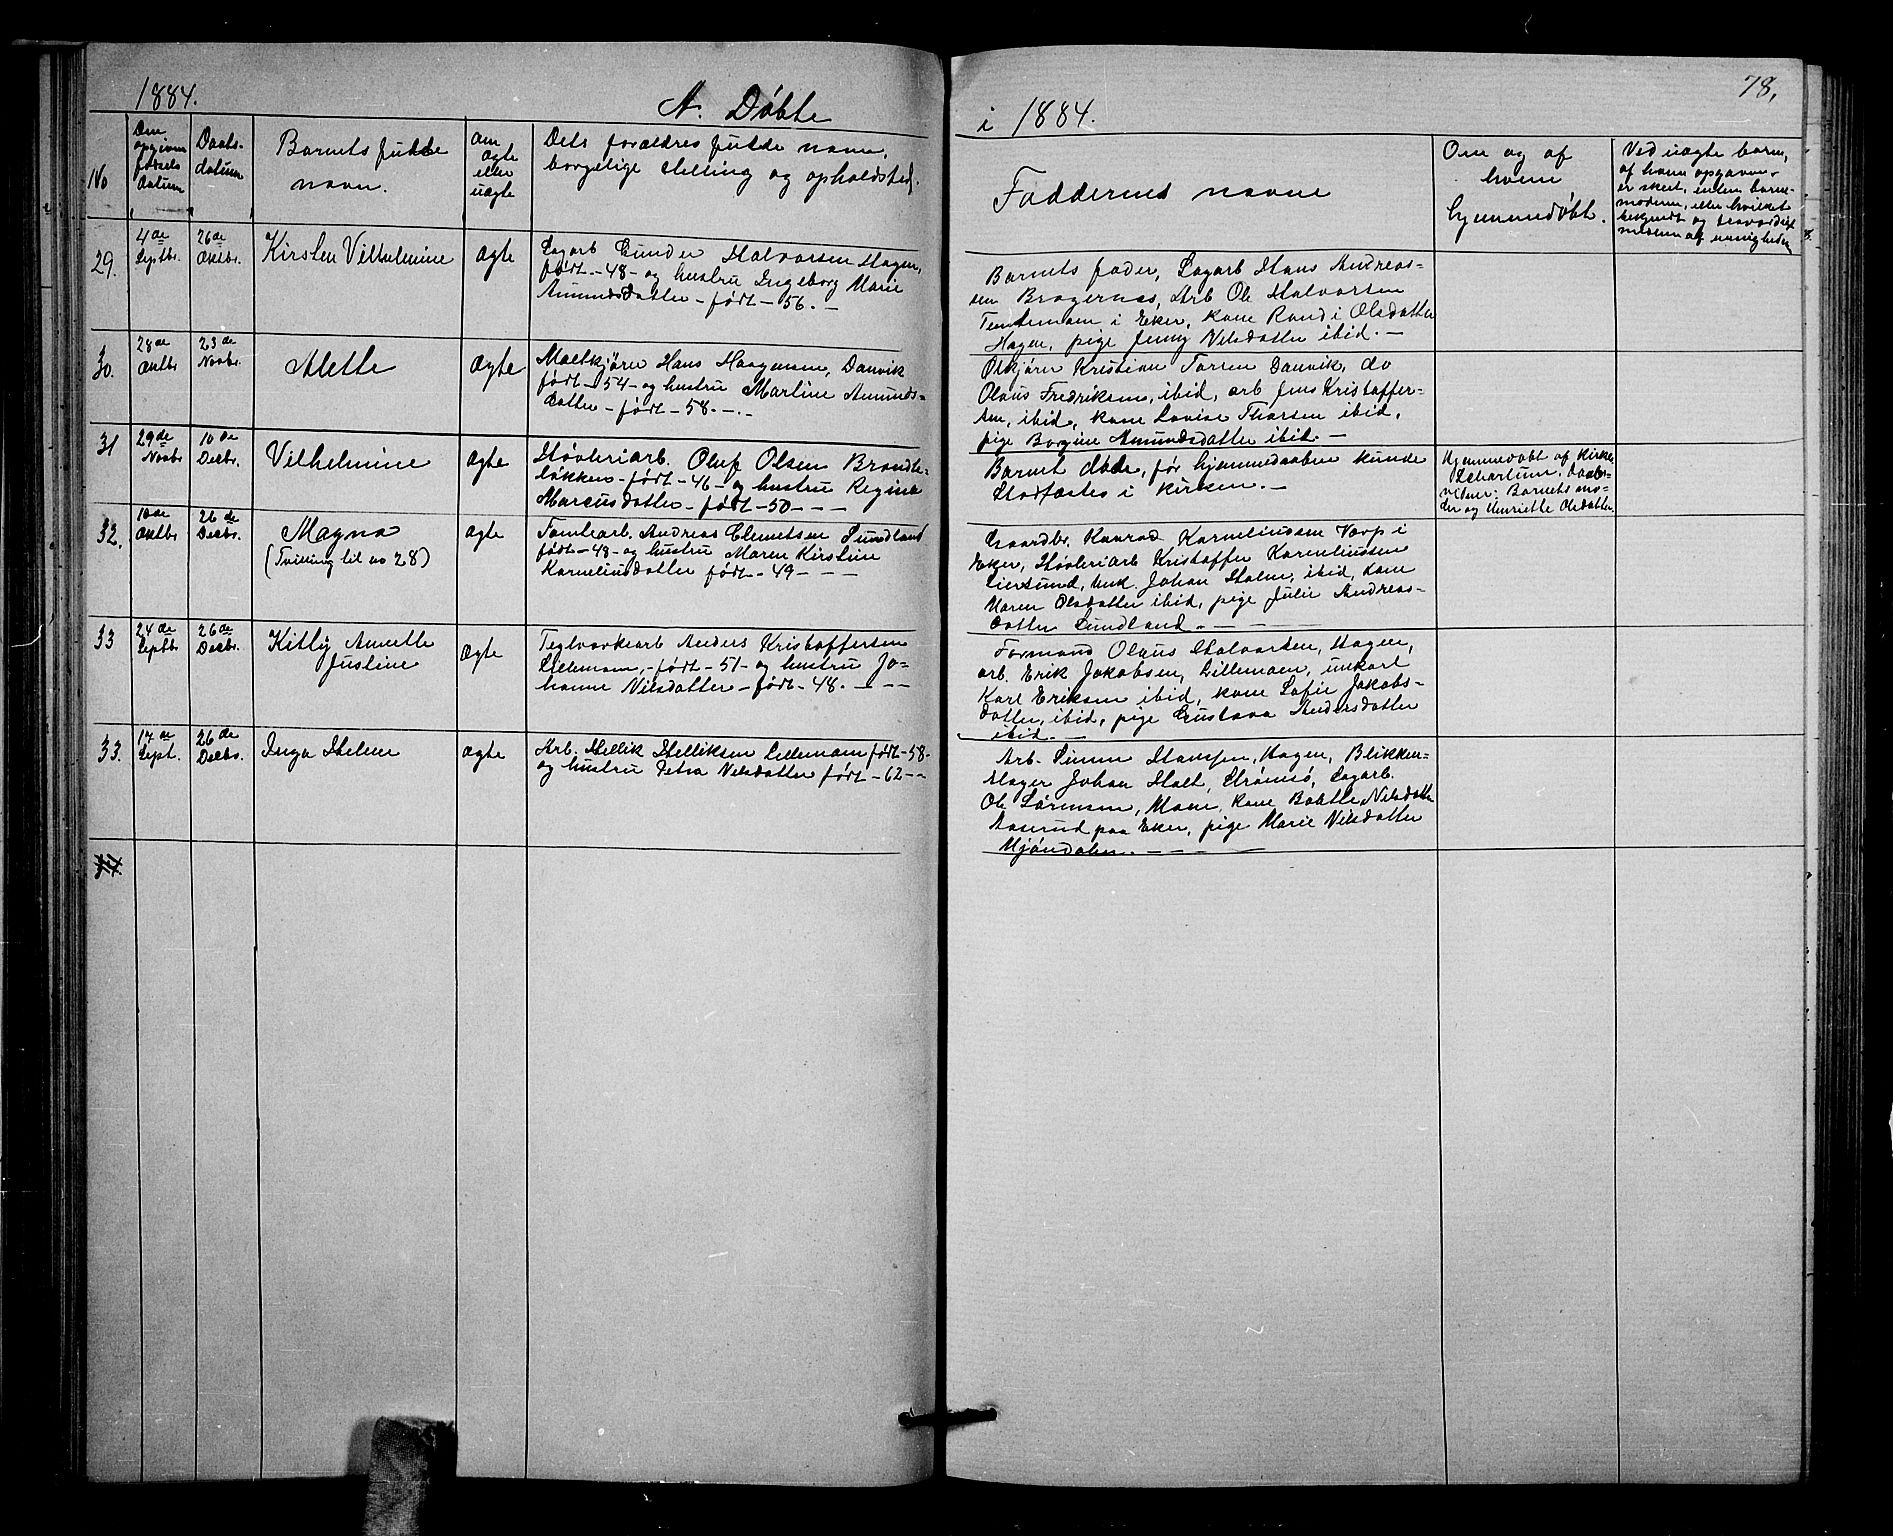 1884.
A. Døbte
i 1884.
78.
No
Den opgivne fødsels datum
Daabs-datum
Barnets fulde navn.
Om ægte eller uægte
Dets forældres fulde navn, borgelige stilling og opholdsted.
Faddernes navne
Om og af hvem hjemmedøbt.
Ved uægte børn, af hvem opgaven er skeet, enten barne-moderen, eller hvilket
29.
4de Septbr.
26de Oktbr.
Kirsten Vilhelmine
ægte
Sagarb Gunder Halvorsen Hagen,
født -48- og hustru Ingeborg Marie
Amundsdatter - født - 56. -
Barnets fader, Sagarb Hans Andreas-
sen Bragernæs, Arb Ole Halvorsen
i Eker, kone Randi Olsdatter
Hagen, pige Jenny Nilsdatter ibid. -
30.
28de Oktbr
23de Novbr.
Alette
Ægte
Hans Haagensen, Danvik
født -54- og hustru Martine Amunds-
datter - født - 58 - -.
Kristian Danvik, do
Olaus Fredriksen, ibid, arb Jens Kristoffer-
sen, ibid, kone Lovise Thorsen ibid,
pige Bogine Amundsdatter ibid. -
31
29de Novbr
10de Decbr.
Vilhelmine
Ægte
Høvleriarb. Oluf Olsen Brandte-
løkken - født - 46 - og hustru Regine
Marcusdatter - født - 50 - - -
Barnet døde, før hjemmedaaben kunde
Stadfæstes i kirken. -
Hjemmedøbt af Kirkes.
Schartum. Daabs-
vidner: Barnets mo-
der og Henriette Olsdatter
32.
10de Oktbr
26de Decbr.
Magna
(Tvilling til no 28)
ægte
Tomtearb. Andreas Clemetsen Sundland
født -48- og hustru Maren Kirstine
Karneliusdatter født - 49 - - -
Gaardbr. Konrad Karneliussen Varp i
Eker, Høvleriarb Kristoffer Karneliussen
Liersund, Unk. Johan Holm, ibid, kone
Maren Olsdatter ibid, pige Julie Andreas-
datter Sundland. - - -
33
24de Septbr
26de Decbr.
Kitty Annette
Justine
Ægte
Teglværksarb Anders Kristoffersen
Lillemoen, - født - 51 - og hustru Jo-
hanne Nilsdatter - født - 48. - - -
Formand Olaus Halvorsen, Hagen,
arb. Erik Jakobsen, Lillemoen, unkarl
Karl Eriksen ibid, kone Sofie Jakobs-
datter, ibid, pige Gustava Andersdatter
ibid. -
33.
17de Sept.
26de Decbr.
Inga Helene
ægte
Arb. Hellik Helliksen Lillemoen født - 58 -
og hustru Petra Nilsdatter født - 62 - -
Arb. Simen Hansen, Hagen, Blikken-
slager Johan Holt, Strømsø, Sagarb.
Ole Sørensen, Moen, kone Bolette Nilsdatter
Aaserud paa Eker, pige Marie Nilsdatter
Mjøndalen. - - - -